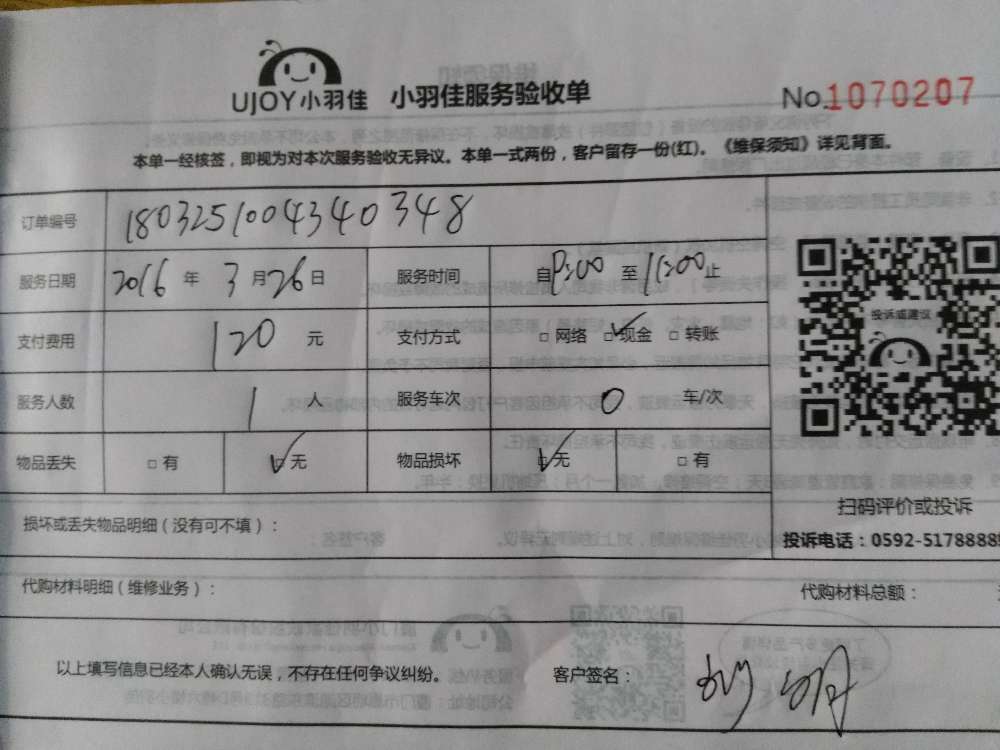 UJOY小羽佳 小羽佳服务验收单 No.1070207
本单一经核签，即视为对本次服务验收无异议。本单一式两份，客户留存一份(红)。《维保须知》详见背面。
订单编号 1803251004340348
服务日期 2016 年 3 月 26 日 服务时间 自 :00 至 11:00 止
投诉或建议
支付费用 120 元 支付方式 □ 网络 ☑ 现金 □ 转账
服务人数 1 人 服务车次 0 车/次
物品丢失 □ 有 ☑ 无 物品损坏 ☑ 无 □ 有
扫码评价或投诉
损坏或丢失物品明细（没有可不填）：
投诉电话：0592-5178888
代购材料明细（维修业务）： 代购材料总额：
以上填写信息已经本人确认无误，不存在任何争议纠纷。 客户签名：